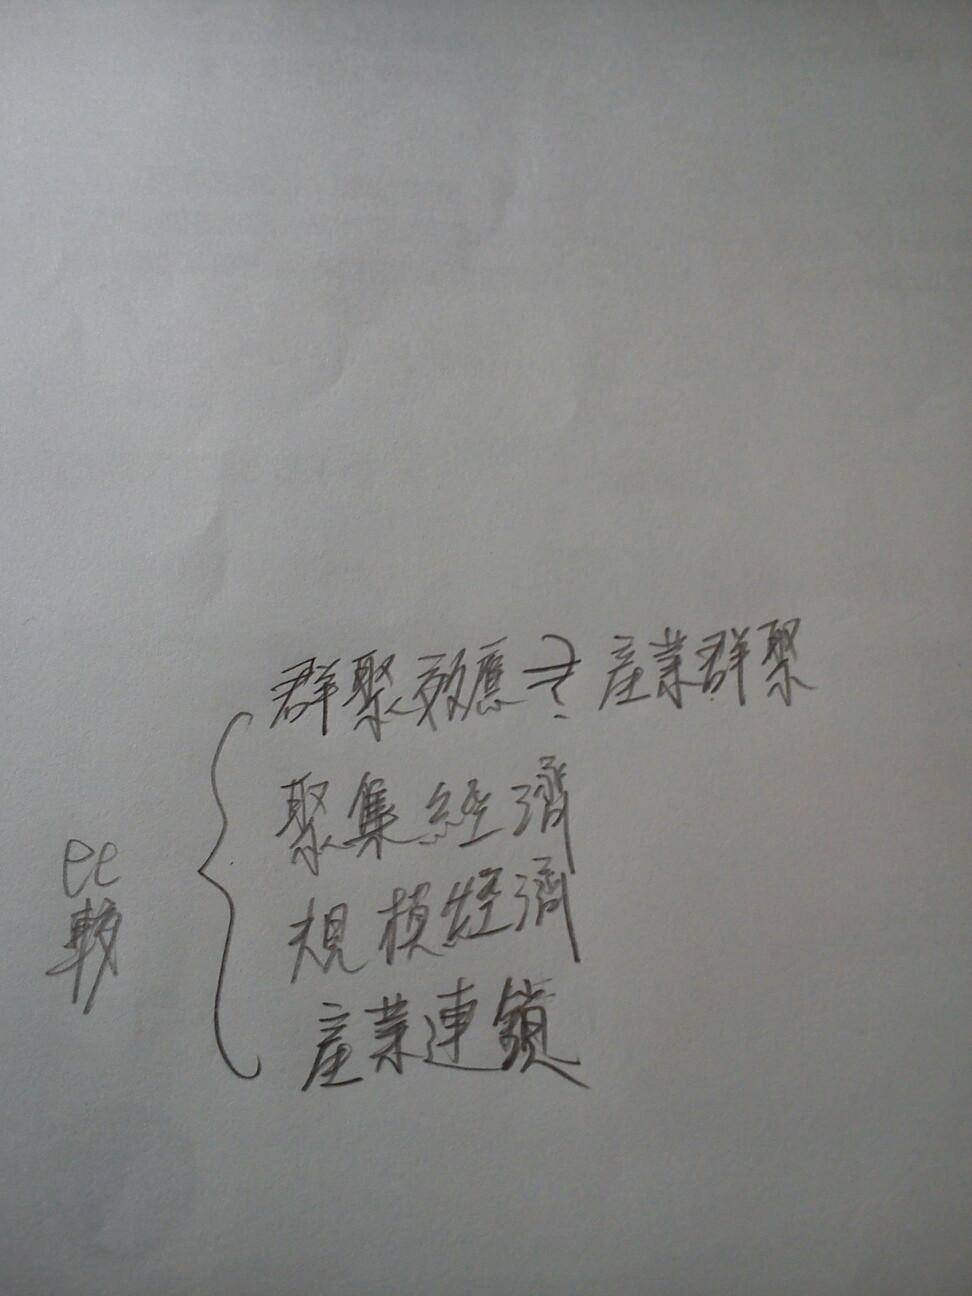 群聚效應⇄產業群聚
聚集經濟
比較
規模經濟
產業連鎖